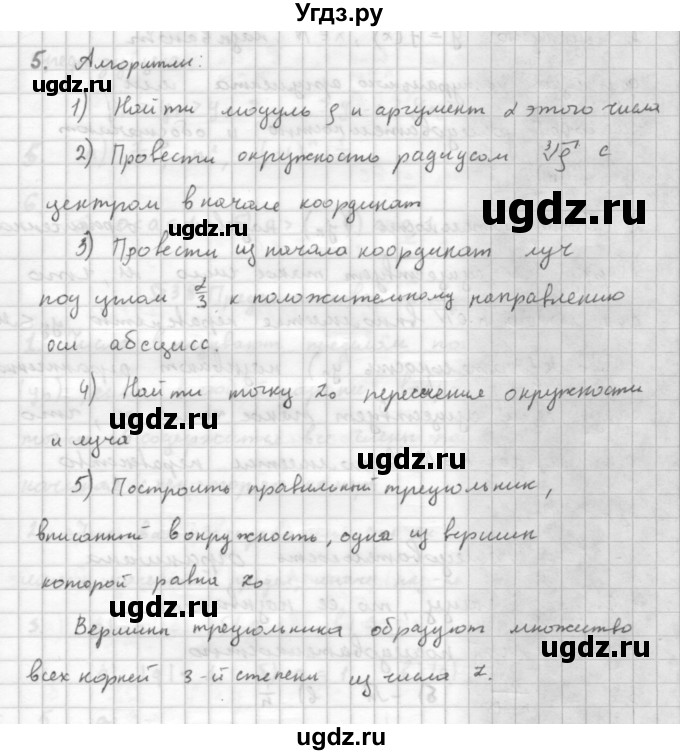 Угдз.ру
5. Алгоритм:
1) Найти модуль ρ и аргумент α этого числа
2) Провести окружность радиусом ∛ρ с
центром в начале координат
ugdz.ru
3) Провести из начала координат луч
ugdz.ru
под углом α/3 к положительному направлению
оси абсцисс.
4) Найти точку z₀ пересечения окружности
ugdz.ru
и луча
ugdz.ru
5) Построить правильный треугольник,
вписанный в окружность, одна из вершин
которой равна z₀
ugdz.ru
Вершины треугольника образуют множество
ugdz.ru
всех корней 3-й степени из числа z.
ugdz.ru